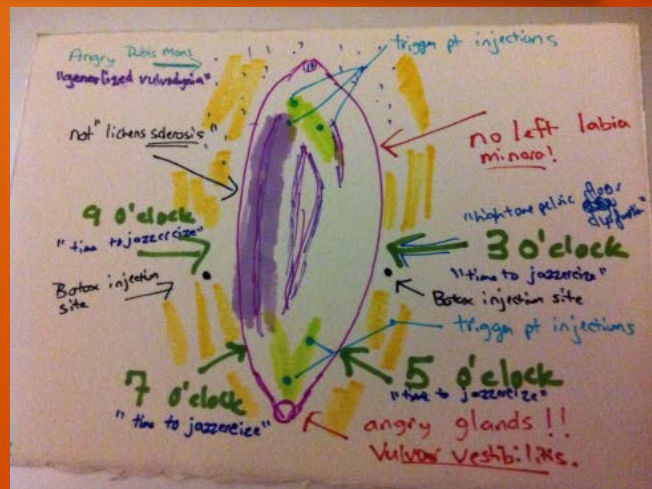 Angry Pubis Mons
"generlized vulvodynia"
trigger pt injections
not "lichens sclerosis"
no left labia
minora!
9 o'clock
"time to jazzercize"
"hightone pelvic floor
dysfunction"
3 o'clock
"time to jazzercize"
Botox injection
site
Botox injection site
trigger pt injections
7 o'clock
"time to jazzercize"
5 o'clock
"time to jazzercize"
angry glands!!
Vulvar Vestibilitis.